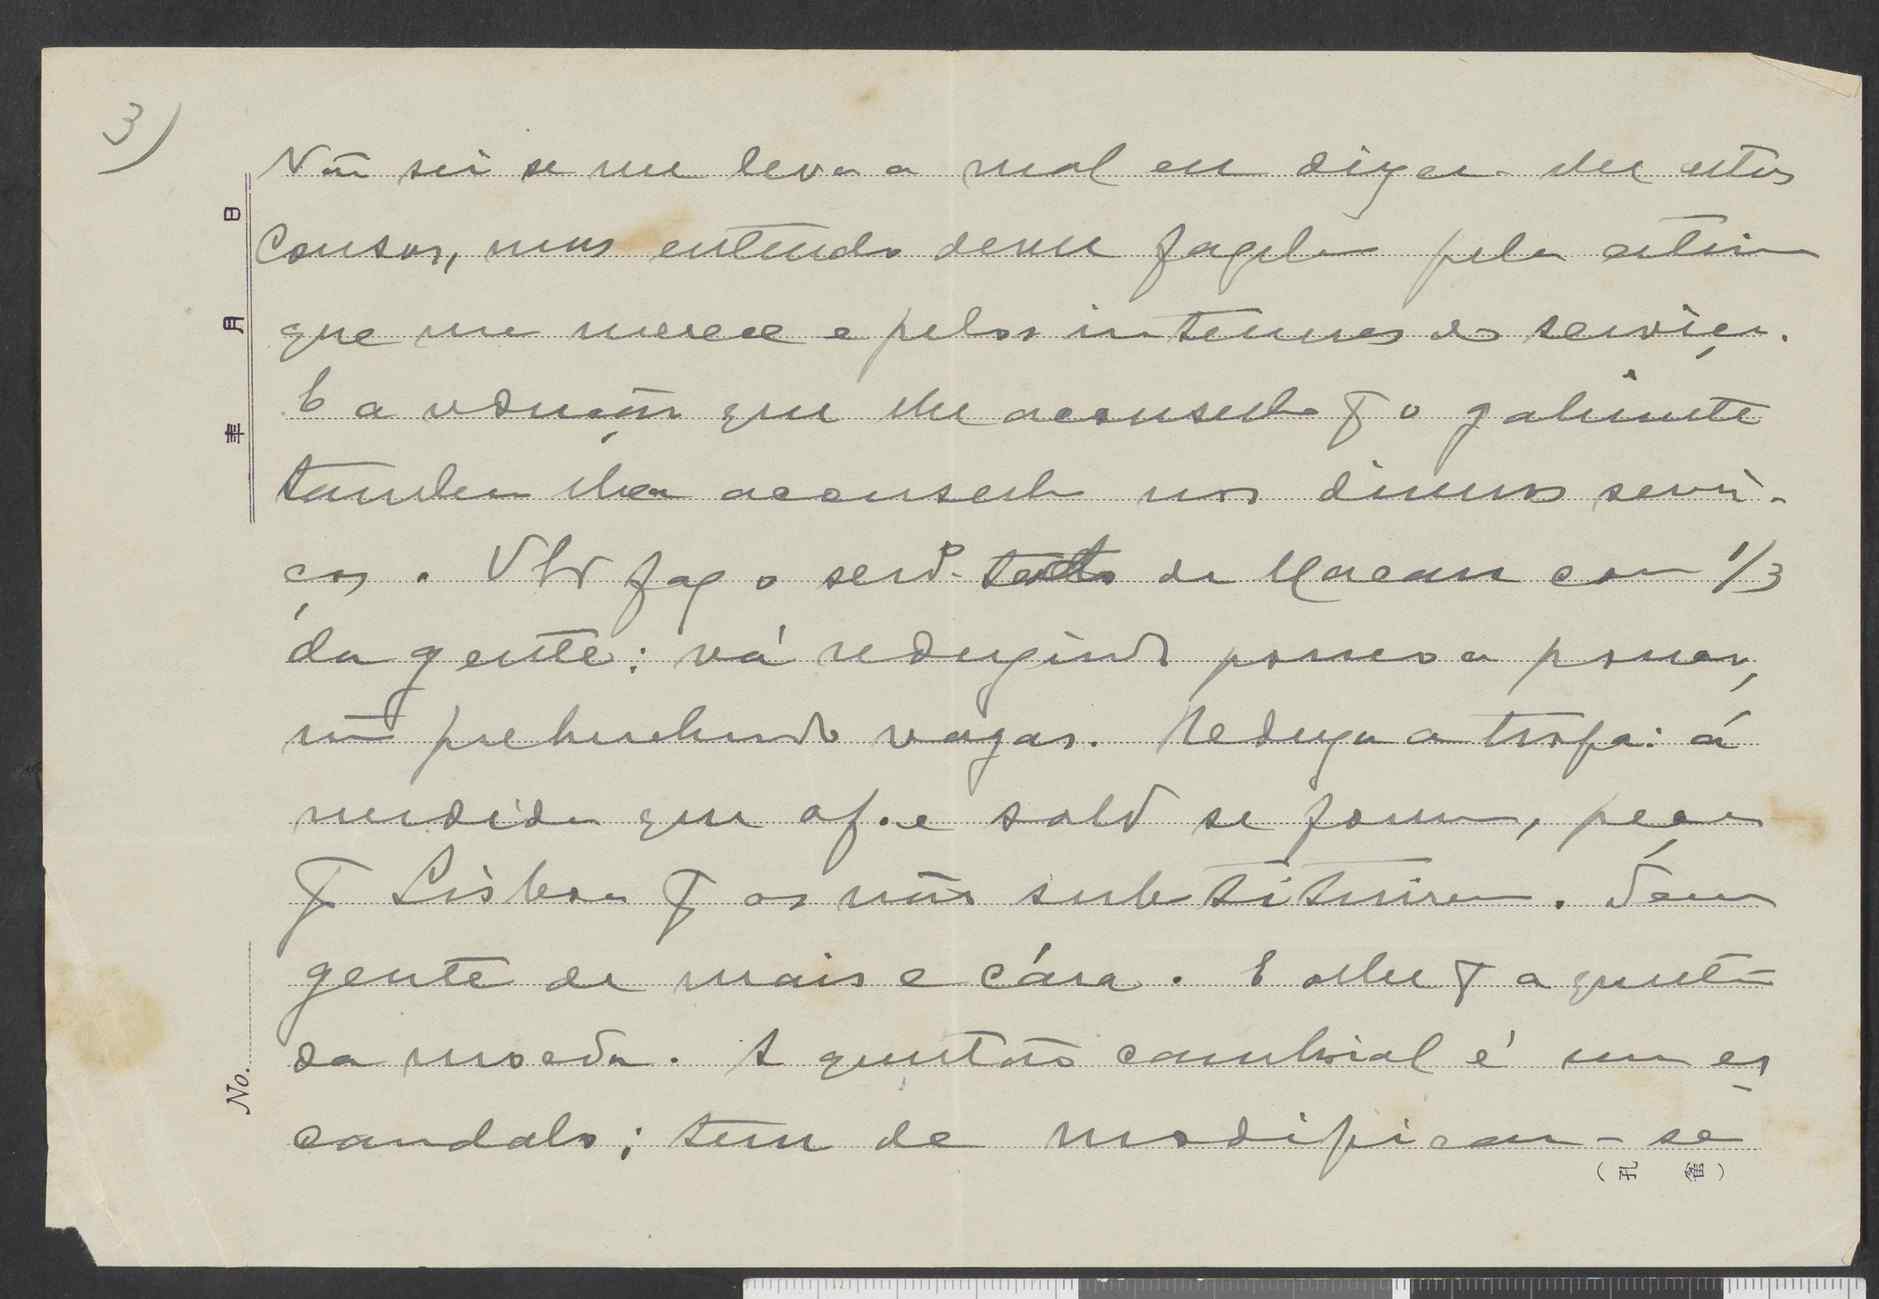 3)
Não sei se me leva a mal eu dizer-lhe estas
cousas, mas entendo dever fazel-o pela estima
que me merece e pelos interesses do serviço.
E a redução que lhe aconselho Ŧ o gabinete
tambem lha aconselho nos diversos servi-
ços. V. faço o serv.º todo de Macau com 1/3
da gente: vá reduzindo pouco a pouco,
não prehenchendo vagas. Reduza a tropa: á
medida que of. e sold se forem, peça
Ŧ Lisboa Ŧ os não substituirem. Tem
gente de mais e cára. E olhe Ŧ a questão
da moeda. A questão cambial é um es
candalo; tem de modificar-se
日
月
年
No.
(孔雀)